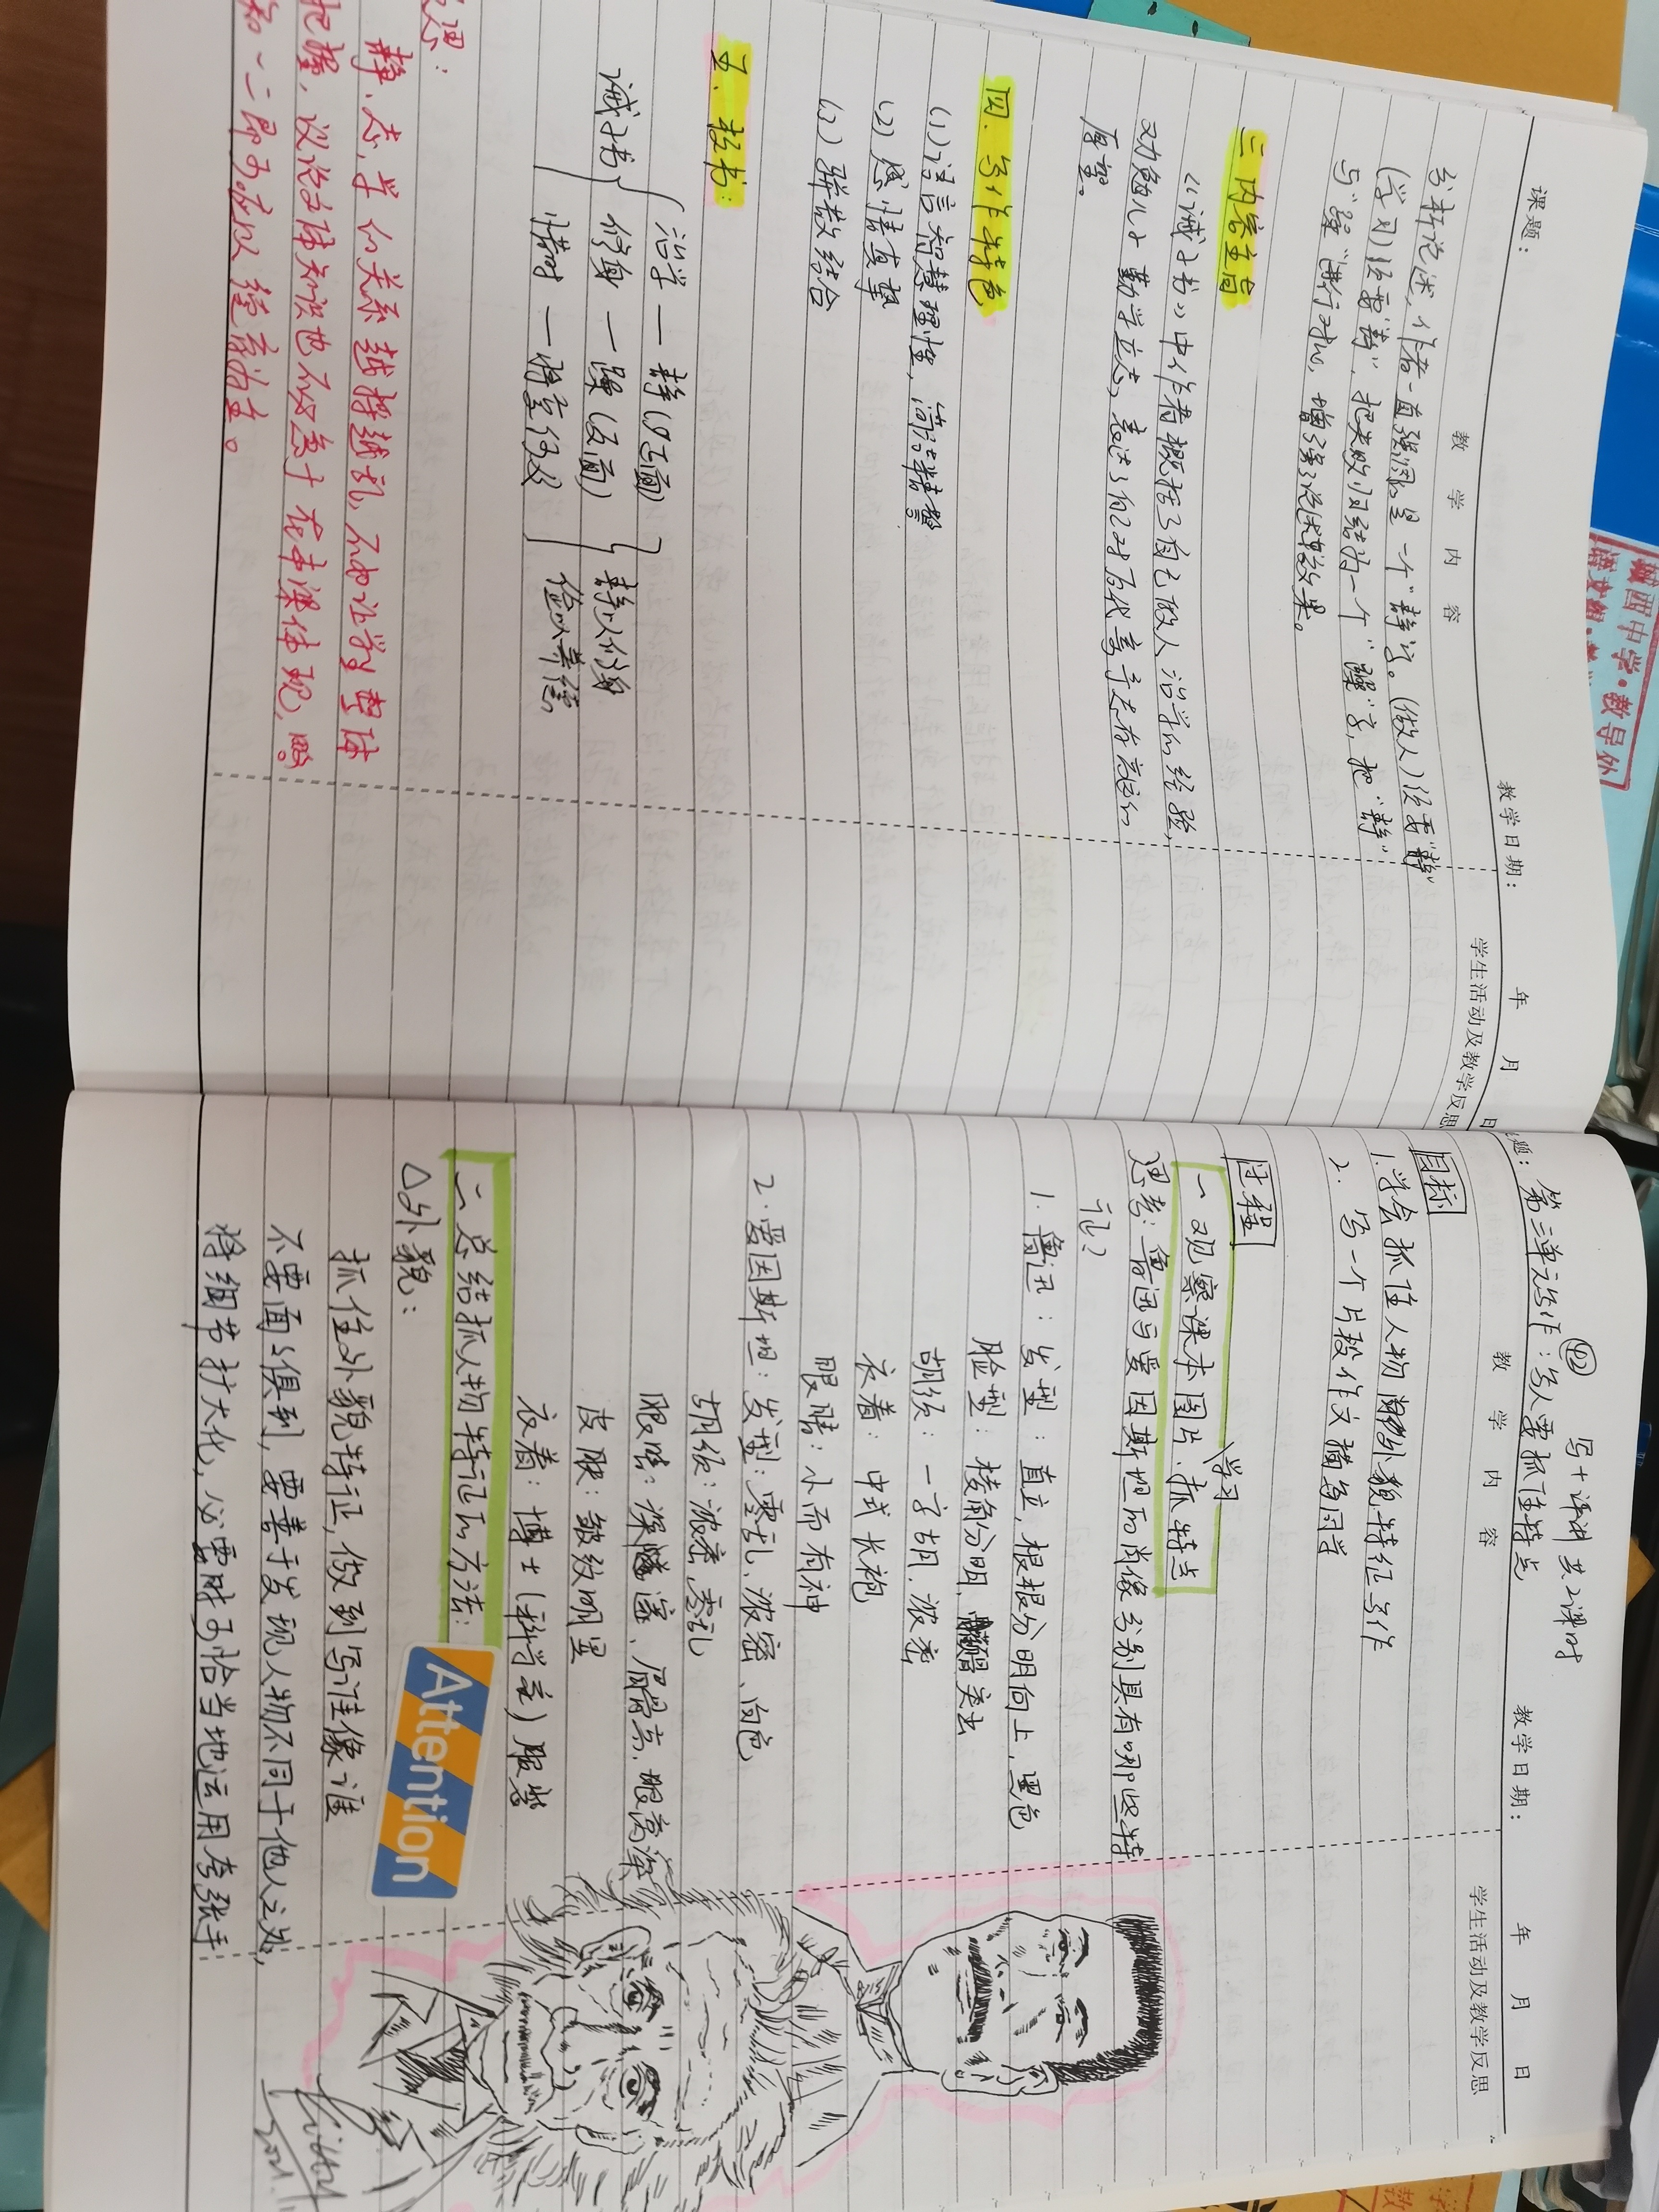 课题：
教学日期： 年 月 日
教 学 内 容
学生活动及教学反思
分析论述，作者一直强调是一个“静”字。(做人)须要“静”
(学习)须要“静”，把失败归结为一个“躁”字，把“静”
与“躁”进行对比，增强论述效果。
三 内容主旨
《诫子书》中作者概括了自己做人治学的经验，
劝勉儿子勤学立志，表达了自己对后代寄予去存高远的
厚望。
四、写作特色
(1)语言智慧理性，简洁精警
(2)感情真挚
(3)骈散结合
五、板书：
诫子书
治学 — 静(正面)
修身 — 躁(反面)
惜时 — 将复何及
静以修身
俭以养德
思：
静、志、学的关系越择越乱，不如让学生整体
把握，议论文体知识也不必急于在本课体现，
和一二即可应以经为主。
42 写+讲评 共2课时
题：第三单元写作：写人要抓住特点
教学日期： 年 月 日
教 学 内 容
学生活动及教学反思
目标
1.学会抓住人物外貌特征写作
2. 写一个片段作文描写同学
过程
一 观察课本图片、学习抓特点
思考：鲁迅与爱因斯坦的肖像分别具有哪些特
征？
1. 鲁迅：发型：直立，根根分明向上，黑色
脸型：棱角分明，突出
胡须：一字胡，浓密
衣着：中式长袍
眼睛：小而有神
2.爱因斯坦：发型：零乱、浓密、白色
胡须：浓密、零乱
眼睛：深邃、眉骨高、眼窝深
皮肤：皱纹明显
衣着：博士(科学家)服装
二 总结抓人物特征的方法：
Attention
△外貌：
抓住外貌特征，做到写准像准
不要面面俱到，要善于发现人物不同于他人之处，
将细节扩大化，必要时可恰当地运用夸张手
陕西中学·教导处